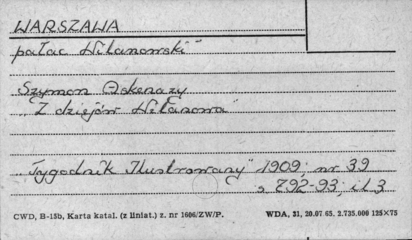 WARSZAWA
pałac Wilanowski"
Szymon Askenazy
"Z dziejów Wilanowa"
"Tygodnik Ilustrowany" 1909, nr 39
s 792-93, il.3
CWD, B-15b, Karta katal. (z liniat.) z. nr 1606/ZW/P.
WDA, 31, 20.07.65. 2.735.000 125×75